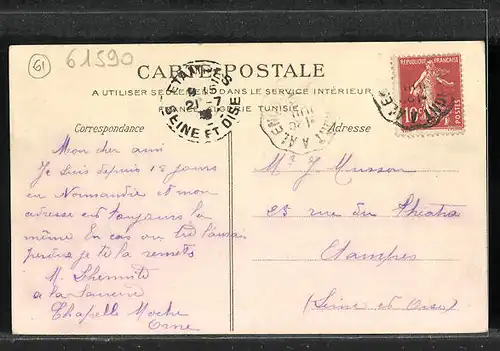 61
61590
CARTE POSTALE
A UTILISER SEULEMENT DANS LE SERVICE INTÉRIEUR
FRANCE, ALGÉRIE TUNISIE
ETAMPES
15
21 -7
SEINE ET OISE
A ALEN
REPUBLIQUE FRANÇAISE
10
POSTES
Correspondance
Adresse
Mon cher ami
Je suis depuis 12 jours
en Normandie et mon
adresse est toujours la
même En cas ou tu l'aurais
perdue je te la remets
M. Lhermitte
a la
Chapelle Moche
Orne
Mr J. Musson
25 rue du Théatre
Etampes
(Seine et Oise)